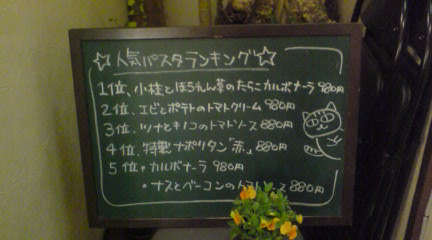 ☆人気パスタランキング☆
1位、小柱とほうれん草のたらこカルボナーラ 980円
2位、エビとポテトのトマトクリーム 980円
3位、ツナとキノコのトマトソース 880円
4位、特製ナポリタン「赤」 880円
5位・カルボナーラ 980円
・ナスとベーコンのトマトソース 880円